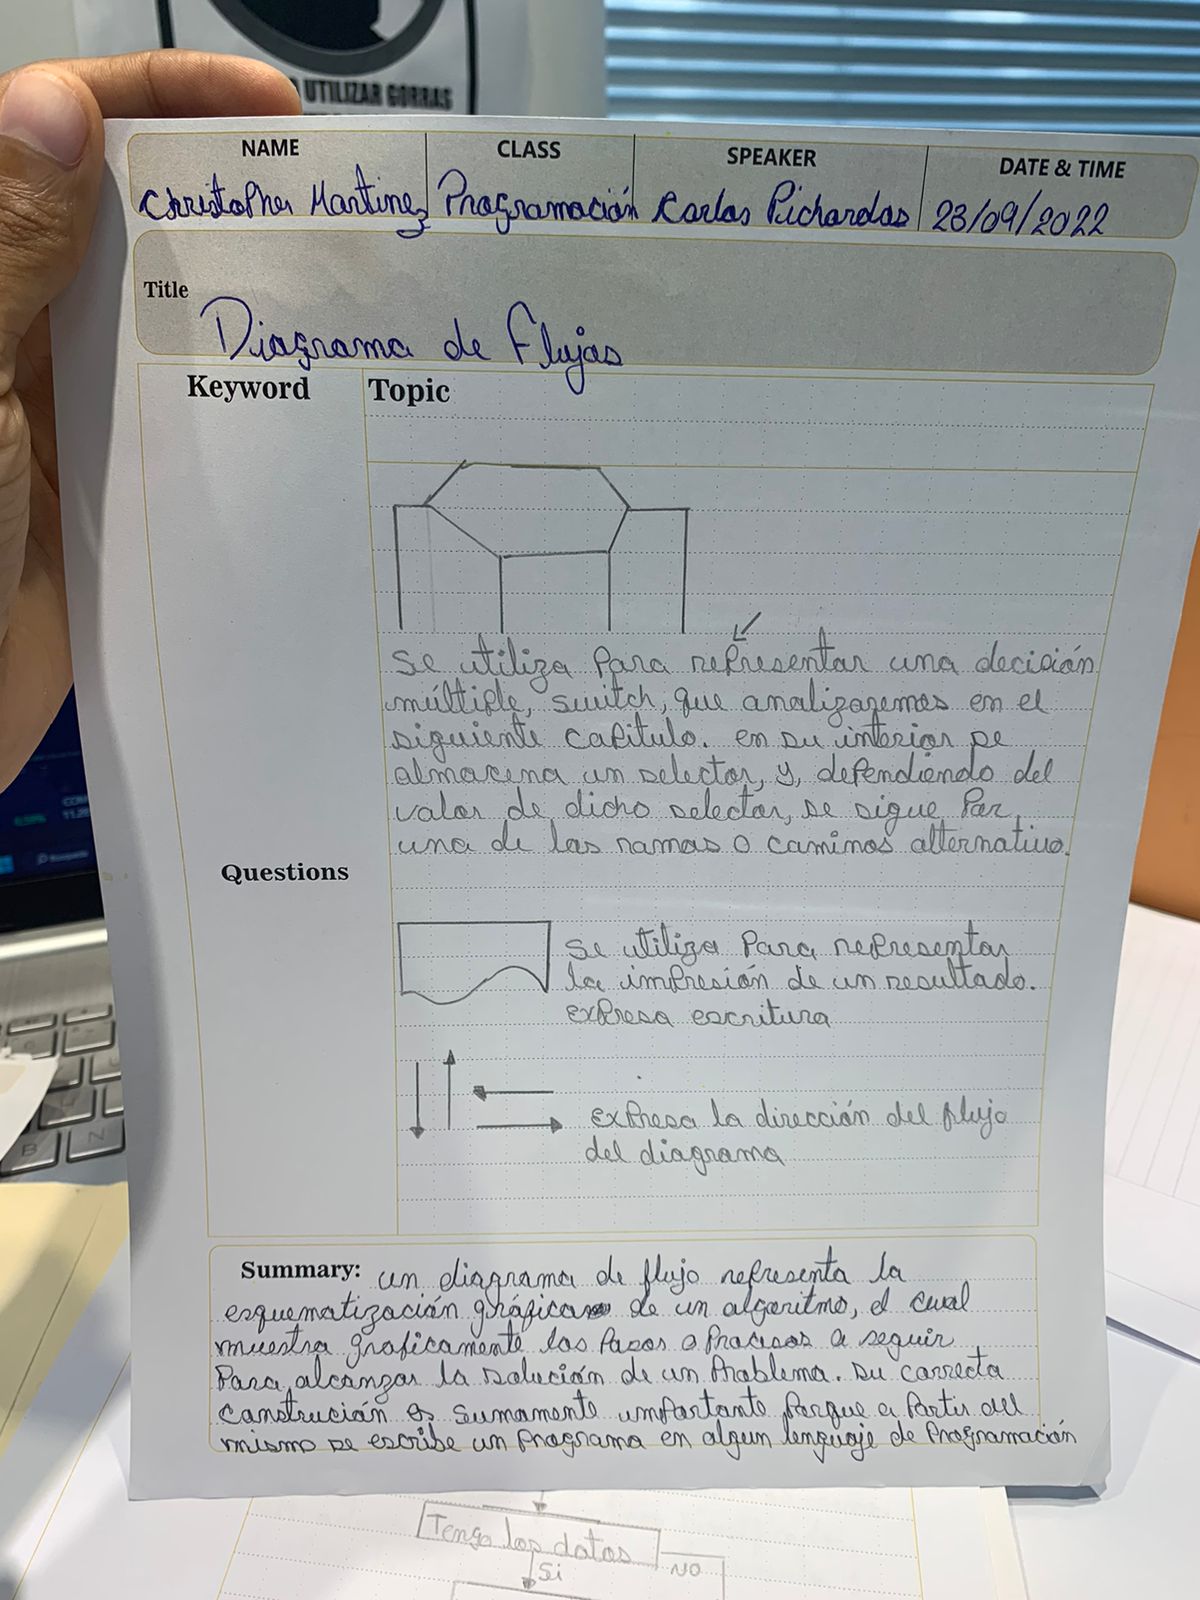 UTILIZAR GORRAS
NAME CLASS SPEAKER DATE & TIME
Christopher Martinez Programación Carlos Pichardos 23/09/2022
Title
Diagrama de Flujos
Keyword Topic
se utiliza para representar una decisión
múltiple, switch, que analizaremos en el
siguiente capitulo. en su interior se
almacena un selector, y, dependiendo del
valor de dicho selector, se sigue por
una de las ramas o caminos alternativo.
Questions
se utiliza para representar
la impresión de un resultado.
expresa escritura
expresa la dirección del flujo
del diagrama
Summary: un diagrama de flujo representa la
esquematización gráfica de un algoritmo, el cual
muestra graficamente los pasos o procesos a seguir
para alcanzar la solución de un problema. su correcta
construción es sumamente importante porque a partir del
mismo se escribe un programa en algun lenguaje de programación
Tengo los datos
NO
Si